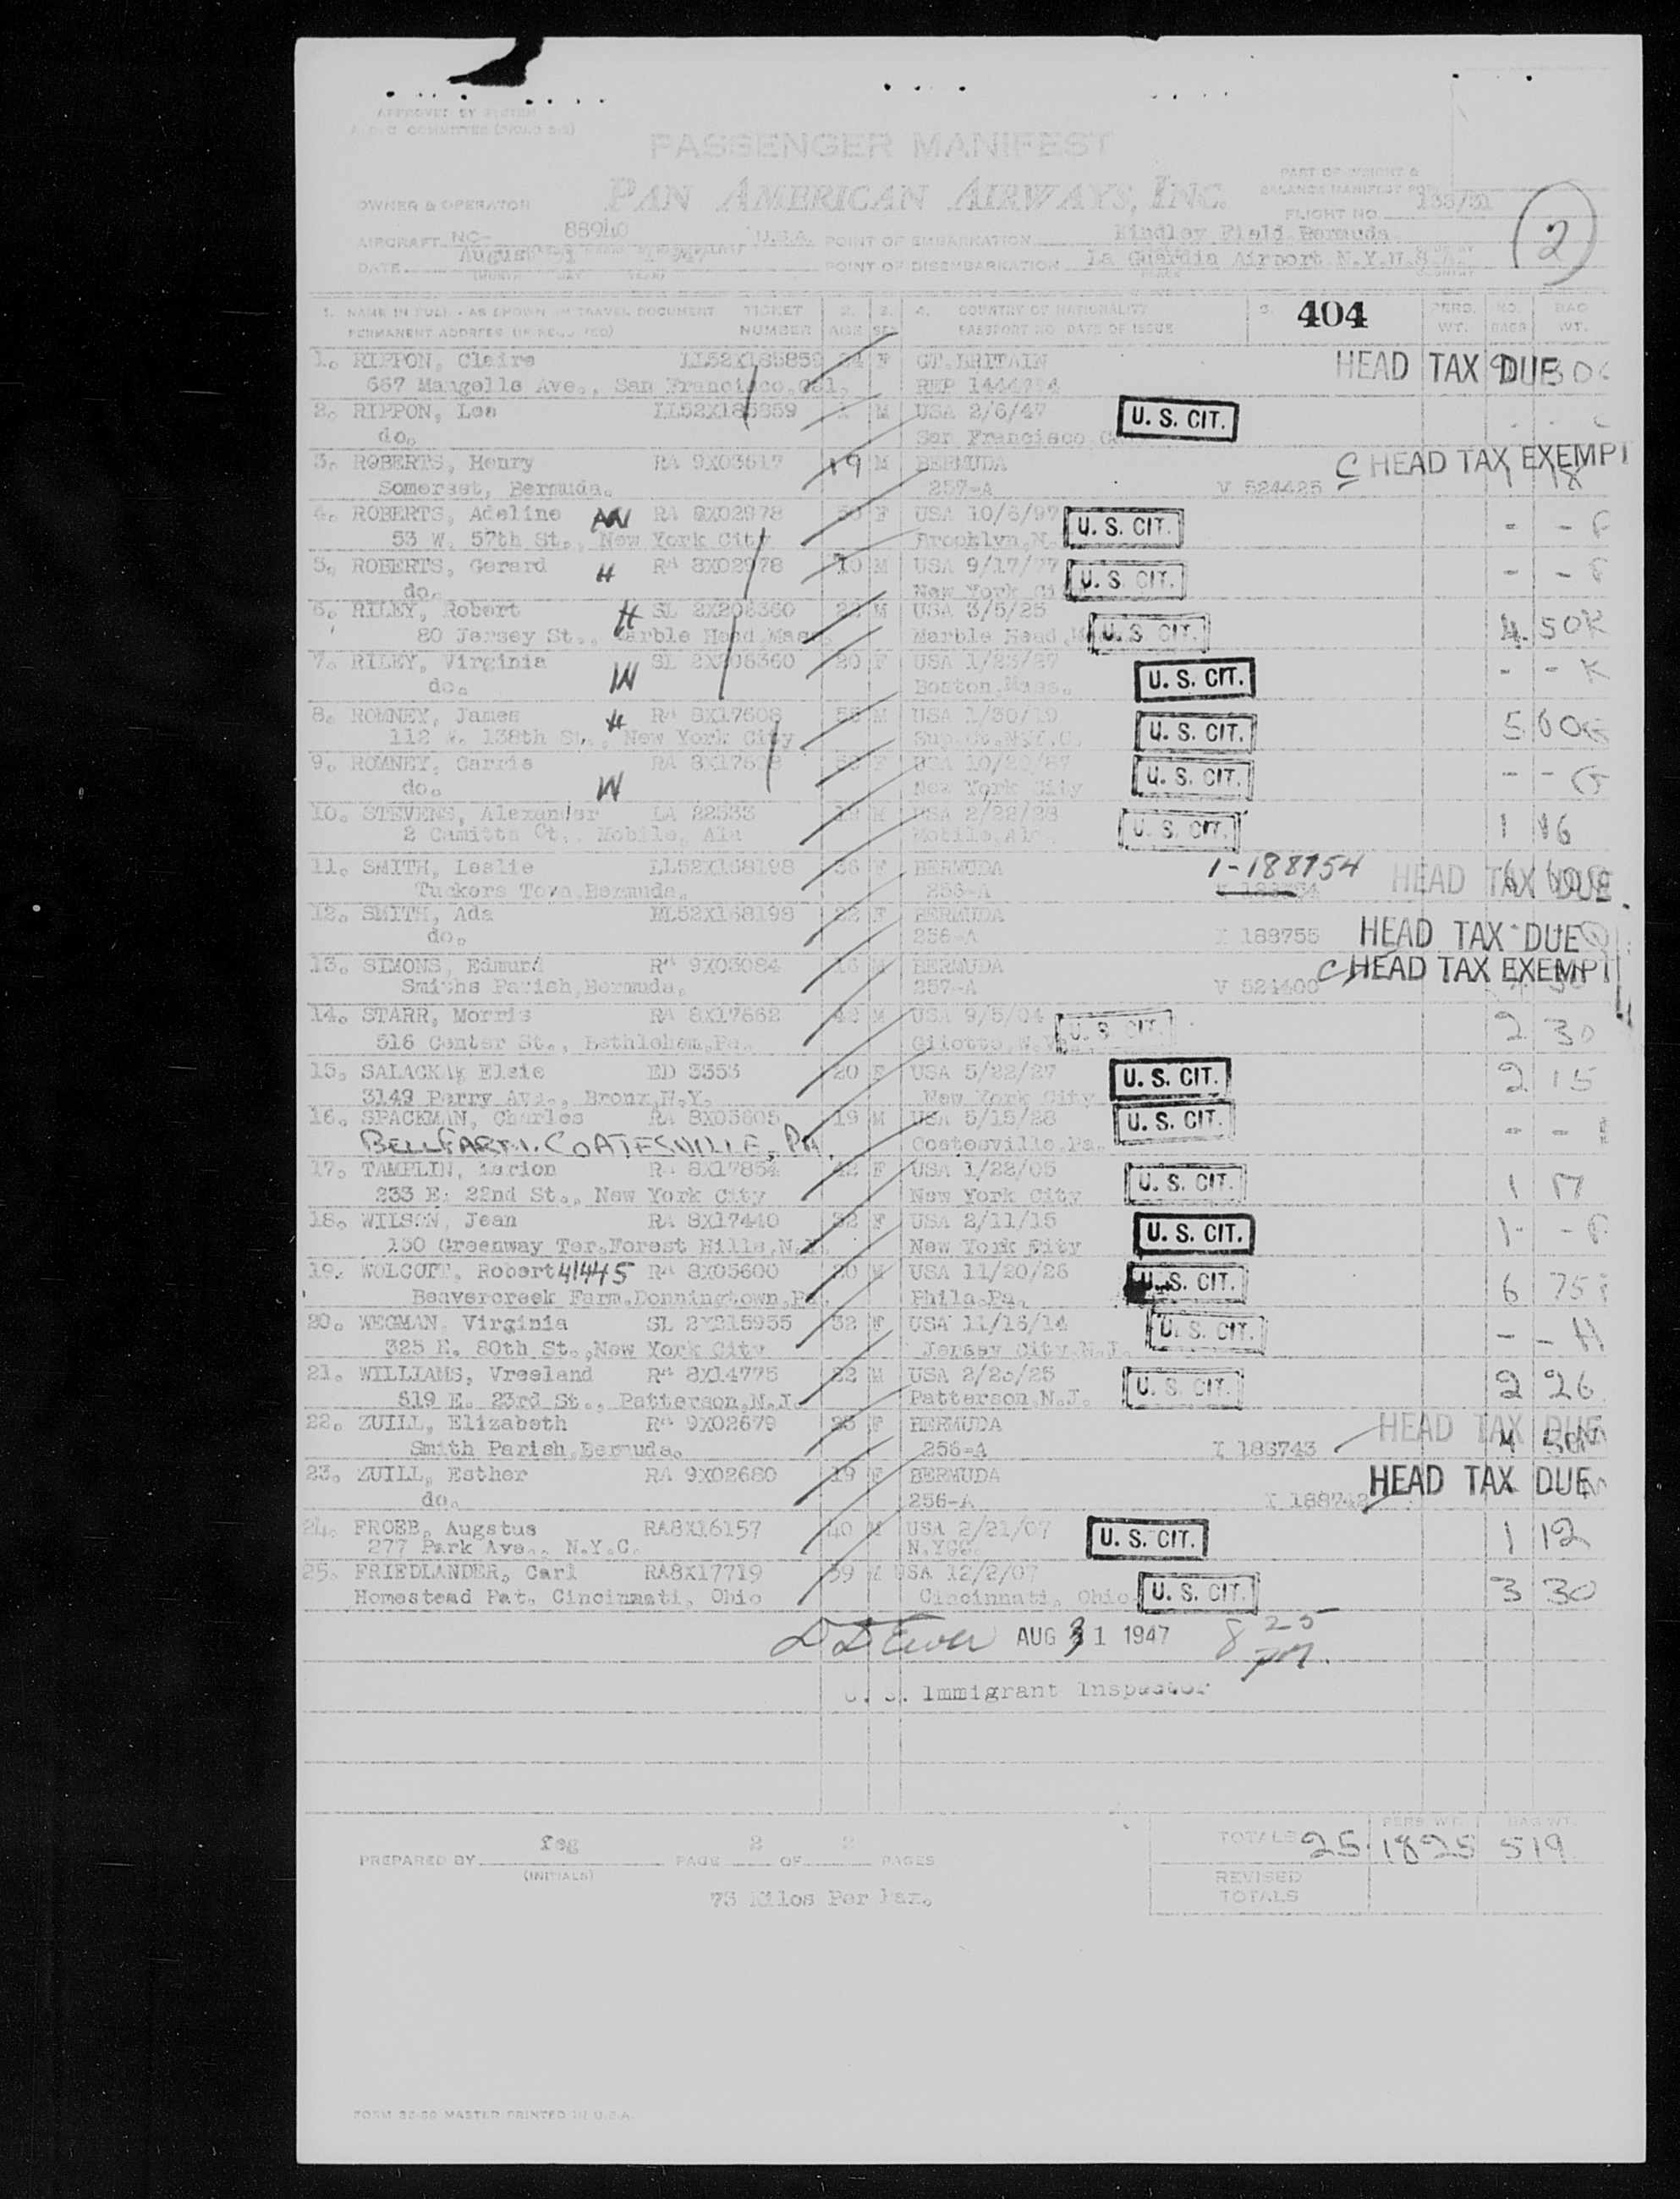 APPROVED BY
COMMITTEE
PASSENGER MANIFEST
PAN AMERICAN AIRWAYS, INC.
PART OF WEIGHT &
BALANCE MANIFEST FOR
OWNER & OPERATOR
FLIGHT NO.
AIRCRAFT NC- 88940 U.S.A. POINT OF EMBARKATION Kindley Field Bermuda
2
DATE August 31 1947 POINT OF DISEMBARKATION La Guardia Airport N.Y.U.S.A.
1. NAME IN FULL - AS SHOWN ON TRAVEL DOCUMENT TICKET 2. 3. 4. COUNTRY OF NATIONALITY 5. 404 PERS. NO. BAG
PERMANENT ADDRESS NUMBER AGE SEX PASSPORT NO. DATE OF ISSUE WT. BAGS WT.
1. RIPPON, Claire LL52X185859 F GT.BRITAIN HEAD TAX DUE
667 Mangells Ave., San Francisco, Cal.
2. RIPPON, Lee LL52X185859 M USA 2/6/47 U. S. CIT.
do. San Francisco
3. ROBERTS, Henry RA 9X03617 19 M BERMUDA C HEAD TAX EXEMPT
Somerset, Bermuda. 257-A V 524425 1 18
4. ROBERTS, Adeline RA 8X02978 50 F USA 10/6/97 U. S. CIT. - -
53 W. 57th St., New York City Brooklyn, N.
5. ROBERTS, Gerard H RA 8X02978 10 M USA 9/17/ U. S. CIT. - -
do. New York
6. RILEY, Robert H SL 2X206360 22 M USA 3/5/25 U. S. CIT. 4 50R
80 Jersey St., Marble Head Mass. Marble Head,
7. RILEY, Virginia W SL 2X206360 20 F USA 1/23/27 U. S. CIT. - -
do. Boston, Mass.
8. ROMNEY, James H RA 8X17608 M USA 1/30/19 U. S. CIT. 5 60
112 W. 138th St., New York City
9. ROMNEY, Carrie W RA 8X17608 F USA 10/20/87 U. S. CIT. - - G
do. New York City
10. STEVENS, Alexander LA 22533 19 M USA 2/22/28 U. S. CIT. 1 16
2 Camitta Ct., Mobile, Ala Mobile, Ala.
11. SMITH, Leslie LL52X168198 36 F BERMUDA 1-188754 HEAD TAX DUE
Tuckers Town, Bermuda. 256-A
12. SMITH, Ada LL52X168199 22 F BERMUDA HEAD TAX DUE
do. 256-A I 188755
13. SIMONS, Edmund RA 9X03084 M BERMUDA C HEAD TAX EXEMPT
Smiths Parish, Bermuda. 257-A V 524400
14. STARR, Morris RA 8X17662 42 M USA 9/5/04 U. S. CIT. 2 30
516 Center St., Bethlehem, Pa.
15. SALACKA, Elsie ED 3353 20 F USA 5/22/27 U. S. CIT. 2 15
3149 Perry Ave., Bronx, N.Y. New York City
16. SPACKMAN, Charles RA 8X05605 19 M USA 5/15/28 U. S. CIT. - -
COATESVILLE, PA. Coatesville, Pa.
17. TAMPLIN, Marion RA 8X17854 42 F USA 1/22/05 U. S. CIT. 1 17
233 E. 22nd St., New York City New York City
18. WILSON, Jean RA 8X17440 32 F USA 2/11/15 U. S. CIT. 1 - -
150 Greenway Ter. Forest Hills, N.Y. New York City
19. WOLCOTT, Robert 41445 RA 8X05600 20 M USA 11/20/26 U. S. CIT. 6 75
Beavercreek Farm. Donningtown, Pa. Phila. Pa.
20. WEGMAN, Virginia SL 2X215955 32 F USA 11/16/14 U. S. CIT. - - H
325 E. 80th St., New York City Jersey City N.J.
21. WILLIAMS, Vreeland RA 8X14775 22 M USA 2/23/25 U. S. CIT. 2 26
519 E. 23rd St., Patterson, N.J. Patterson, N.J.
22. ZUILL, Elizabeth RA 9X02679 F BERMUDA HEAD TAX DUE
Smith Parish, Bermuda. 256-A I 188743
23. ZUILL, Esther RA 9X02680 19 F BERMUDA HEAD TAX DUE
do. 256-A I 188742
24. FROEB, Augstus RA8X16157 40 M USA 2/21/07 U. S. CIT. 1 12
277 Park Ave., N.Y.C.
25. FRIEDLANDER, Carl RA8X17719 39 M USA 12/2/07 U. S. CIT. 3 30
Homestead Pat. Cincinnati, Ohio Cincinnati, Ohio
AUG 31 1947 8 25 PM.
U. S. Immigrant Inspector
PREPARED BY feg PAGE 2 OF 2 PAGES
(INITIALS)
PERS. WT. BAG WT.
TOTALS 25 1825 519
REVISED
TOTALS
73 Kilos Per Pax.
FORM MASTER PRINTED IN U.S.A.